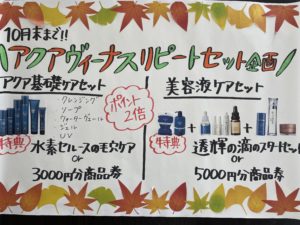 10月末まで!!
アクアヴィーナスリピートセット企画
アクア基礎ケアセット
クレンジング
ソープ
ウォーターヴェール
ジェル
UV
ポイント
2倍
特典
水素セルースの毛穴ケア
or
3000円分商品券
美容液ケアセット
+
+
+
特典
透輝の滴のスターセット
or
5000円分商品券